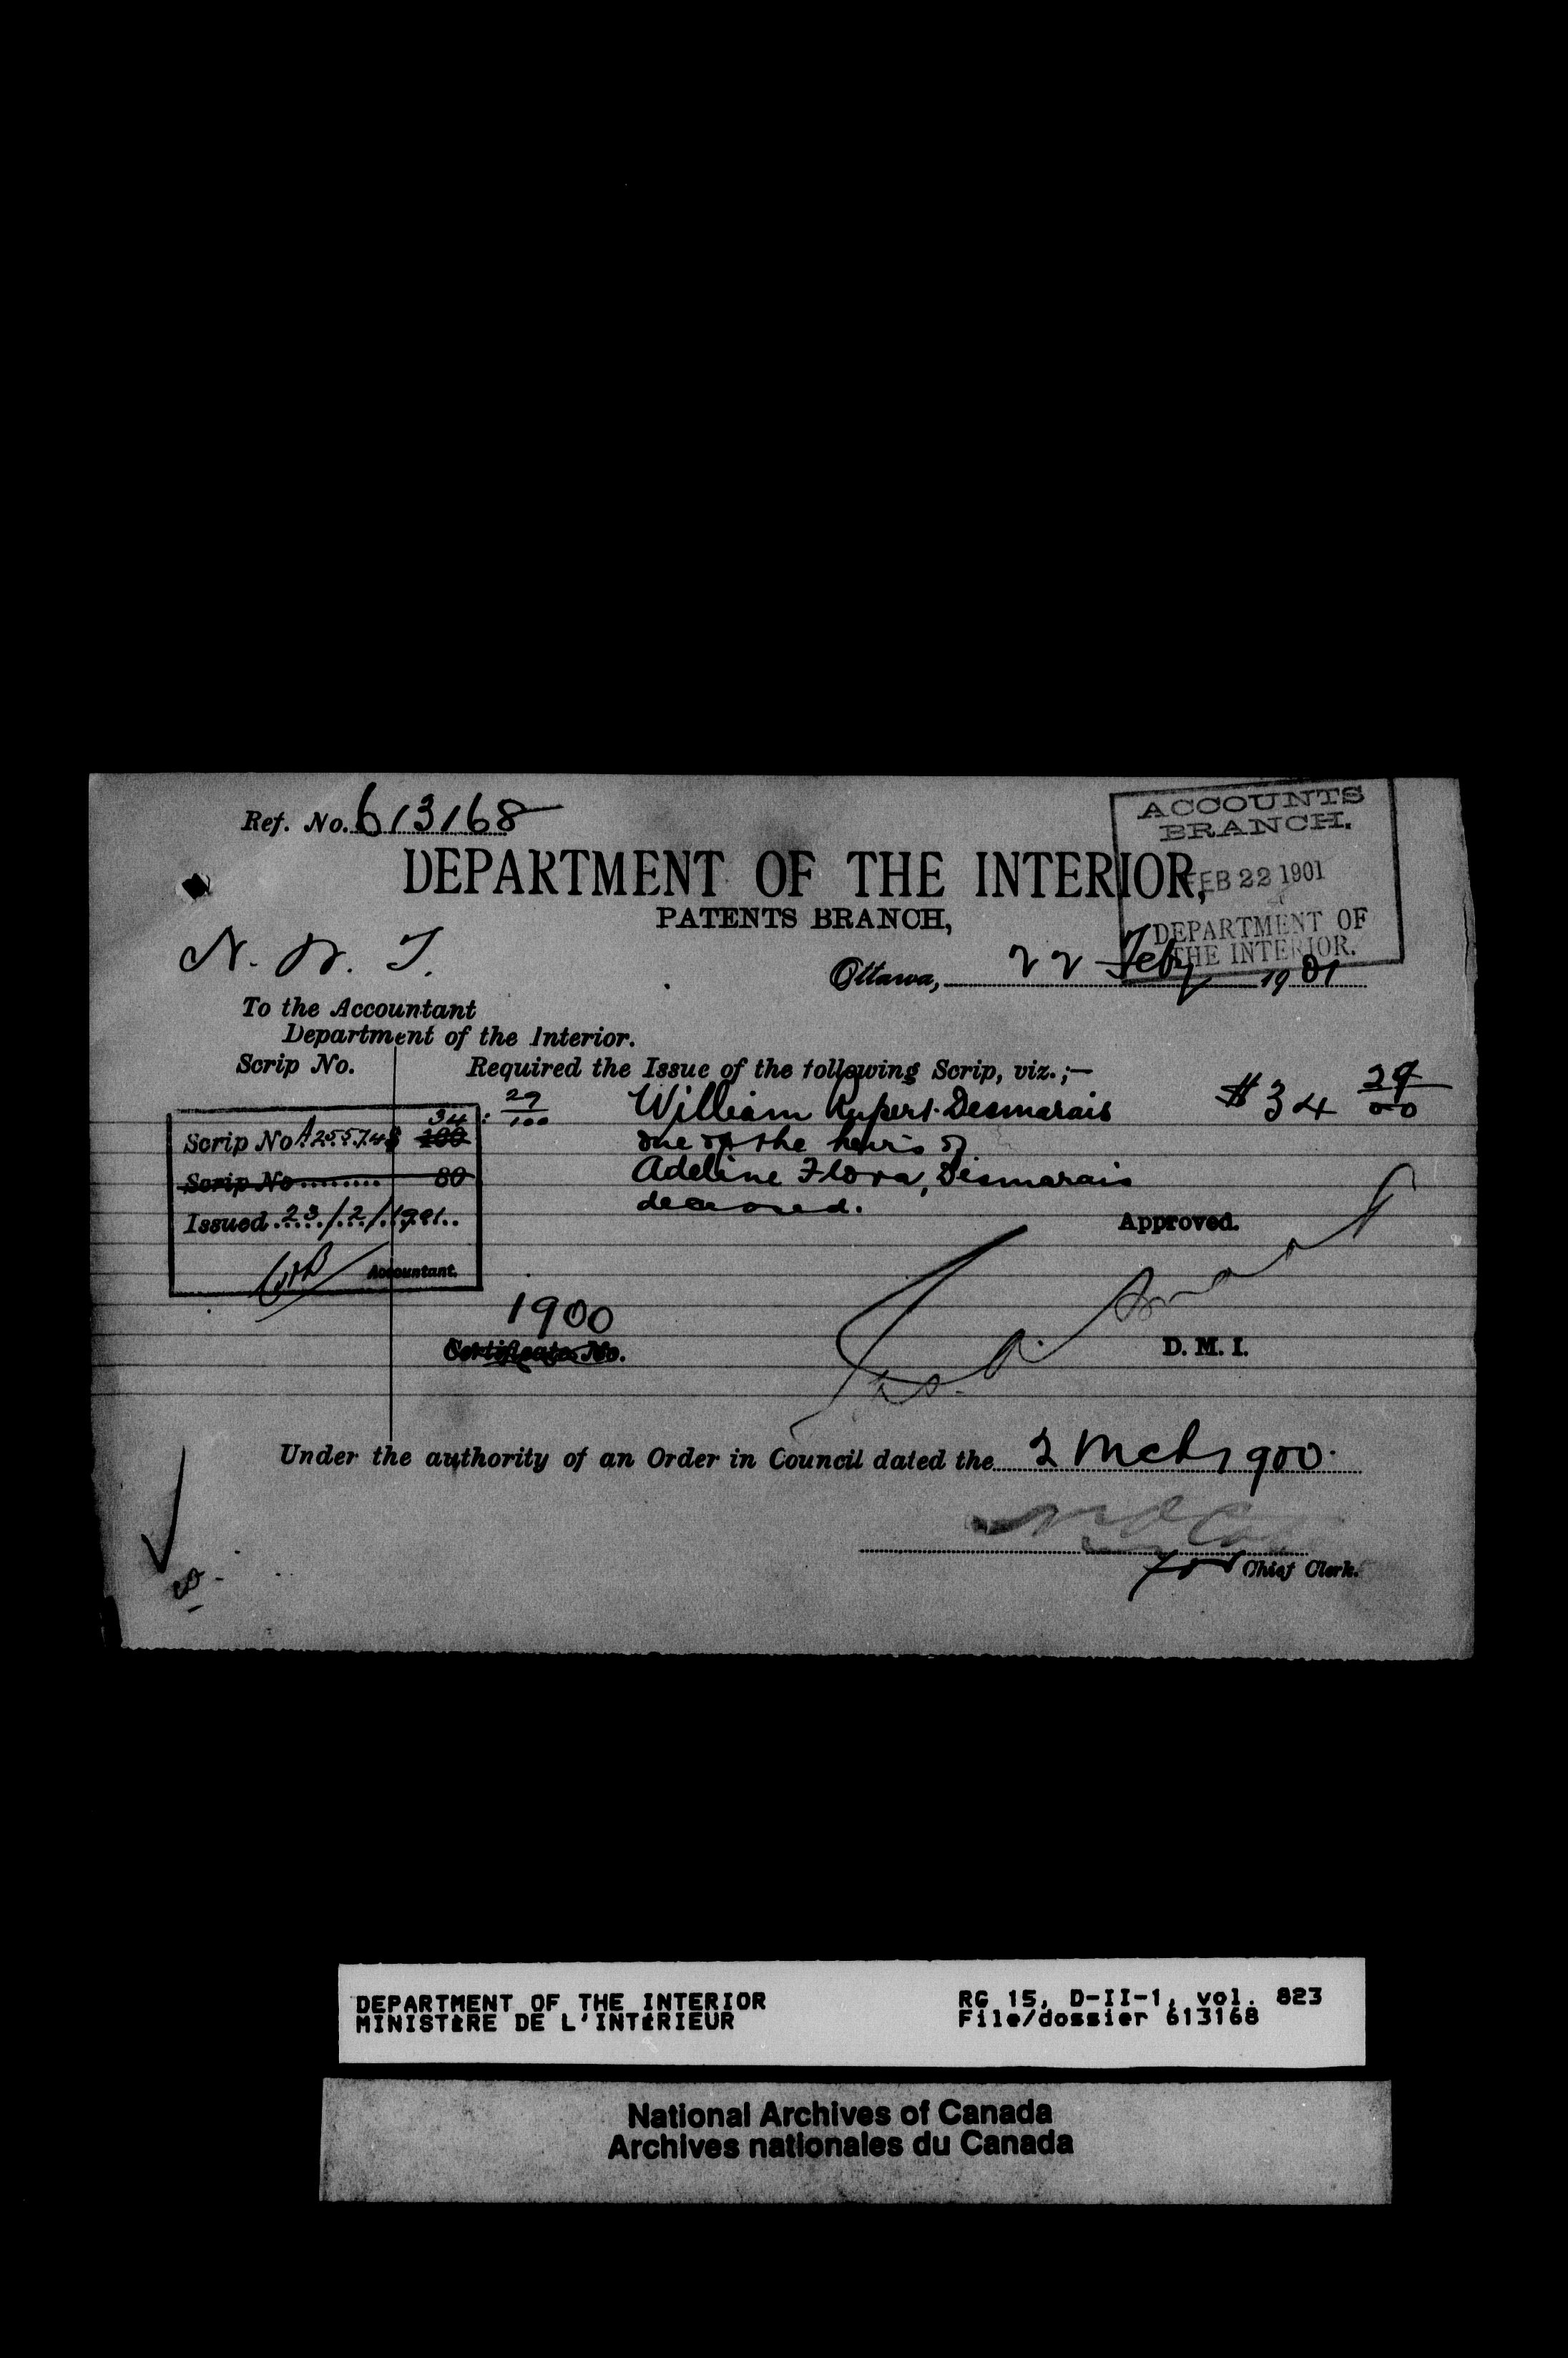 Ref. No. 613168
ACCOUNTS
BRANCH.
FEB 22 1901
DEPARTMENT OF
THE INTERIOR.
DEPARTMENT OF THE INTERIOR,
PATENTS BRANCH,
N. W. T.
Ottawa, 22 Feby 1901
To the Accountant
Department of the Interior.
Scrip No.
Required the Issue of the following Scrip, viz.;—
William Rupert Desmarais $34 29/00
one of the heirs of
Adeline Flora, Desmarais
deceased.
34: 29/100
Scrip No A 25574 $ 100
Scrip No ......... 80
Issued 23/2/1901
Accountant.
Approved.
1900
Certificate No.
D. M. I.
Under the authority of an Order in Council dated the 2 Mch 1900.
for Chief Clerk.
DEPARTMENT OF THE INTERIOR
MINISTÈRE DE L'INTÉRIEUR
RG 15, D-II-1, vol. 823
File/dossier 613168
National Archives of Canada
Archives nationales du Canada